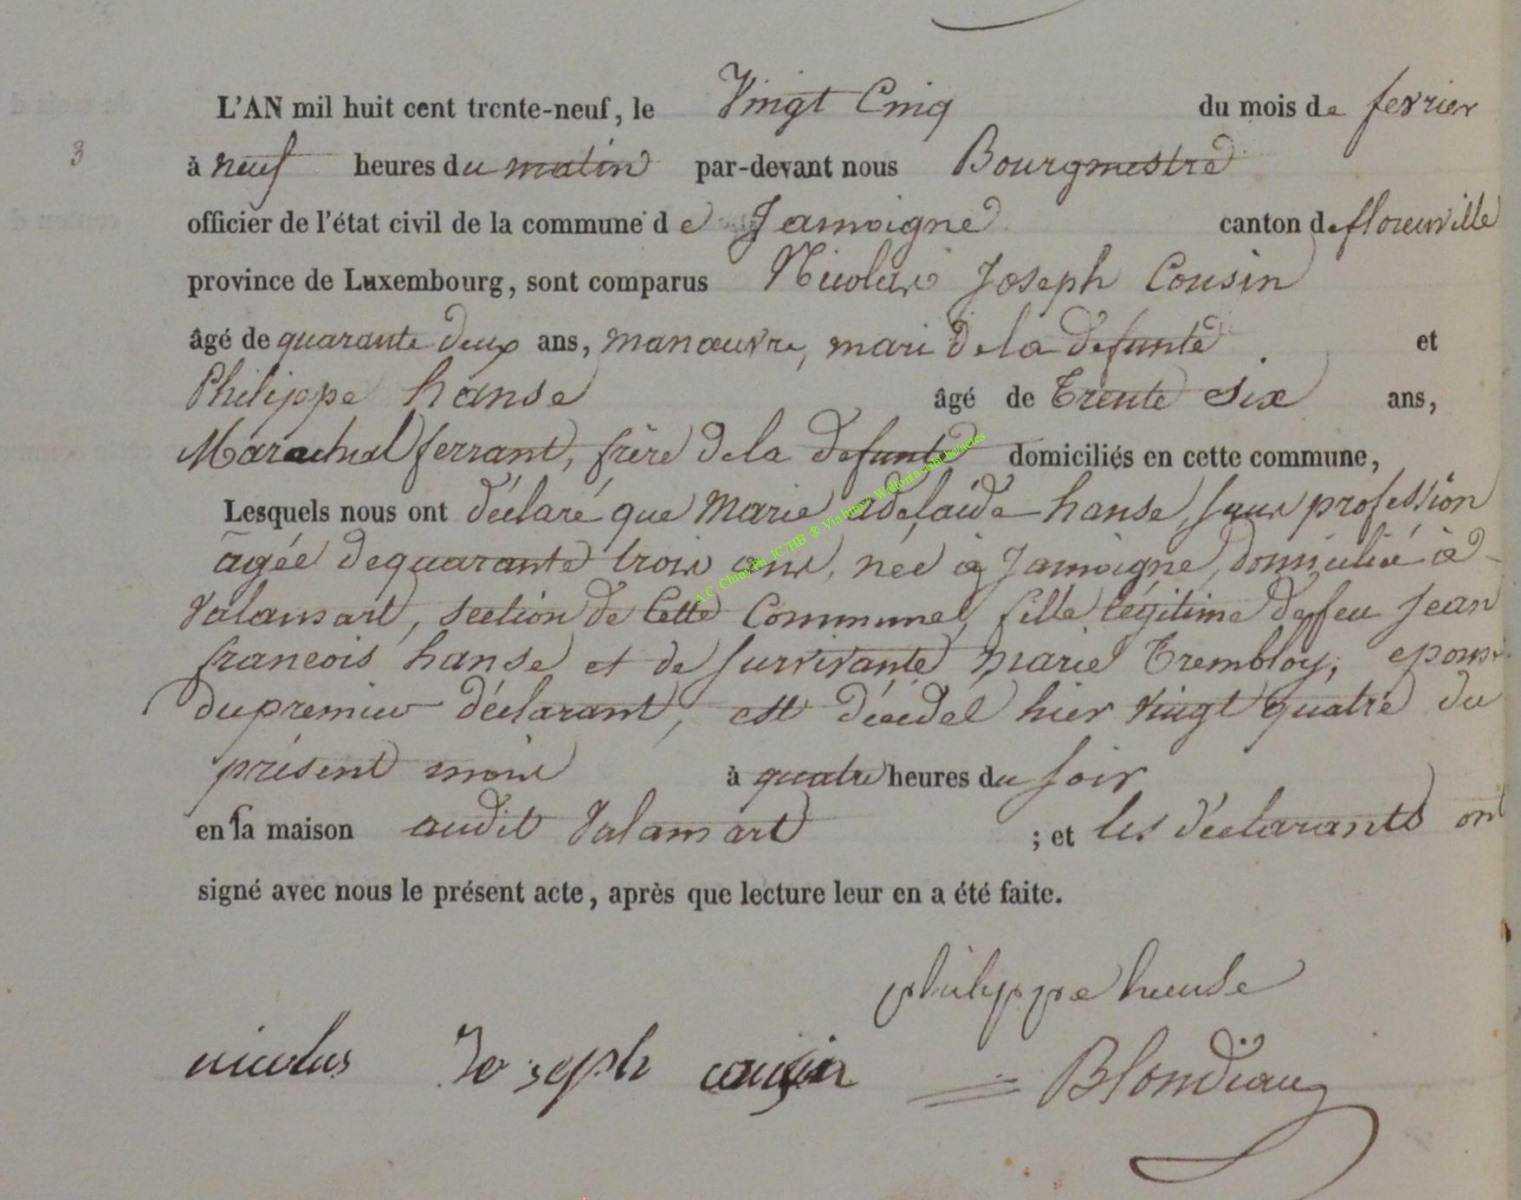 L'AN mil huit cent trente-neuf, le Vingt Cinq du mois de fevrier
3
à neuf heures du matin par-devant nous Bourgmestre
officier de l'état civil de la commune de Jamoigne canton de florenville
province de Luxembourg, sont comparus Nicolas Joseph Cousin
âgé de quarante deux ans, manœuvre, mari de la defunte et
Philippe hanse âgé de Trente six ans,
Marechal ferrant, frère de la defunte domiciliés en cette commune,
Lesquels nous ont déclaré que Marie adelaïde hanse, sans profession
âgée de quarante trois ans, née à Jamoigne, domiciliée à
Valansart, section de Cette Commune, fille légitime de feu Jean
francois hanse et de survivante Marie Trembloy, epouse
du premier déclarant, est décédée hier vingt quatre du
présent mois à quatre heures du soir
en sa maison audit Valansart ; et les déclarants ont
signé avec nous le présent acte, après que lecture leur en a été faite.
philippe hanse
nicolas Joseph cousin Blondiaux